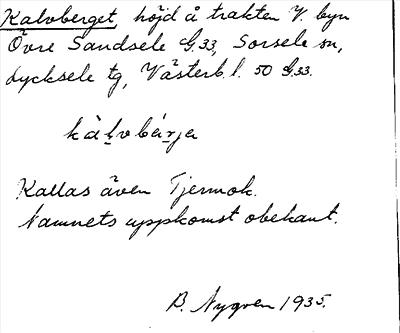 Kalvberget, höjd å trakten V. byn
Övre Sandsele G.33, Sorsele sn,
Lycksele tg, Västerb. l. 50 G.33.
kàḷvbærja
Kallas även Tjermok.
Namnets uppkomst obekant.
B. Nygren 1935.